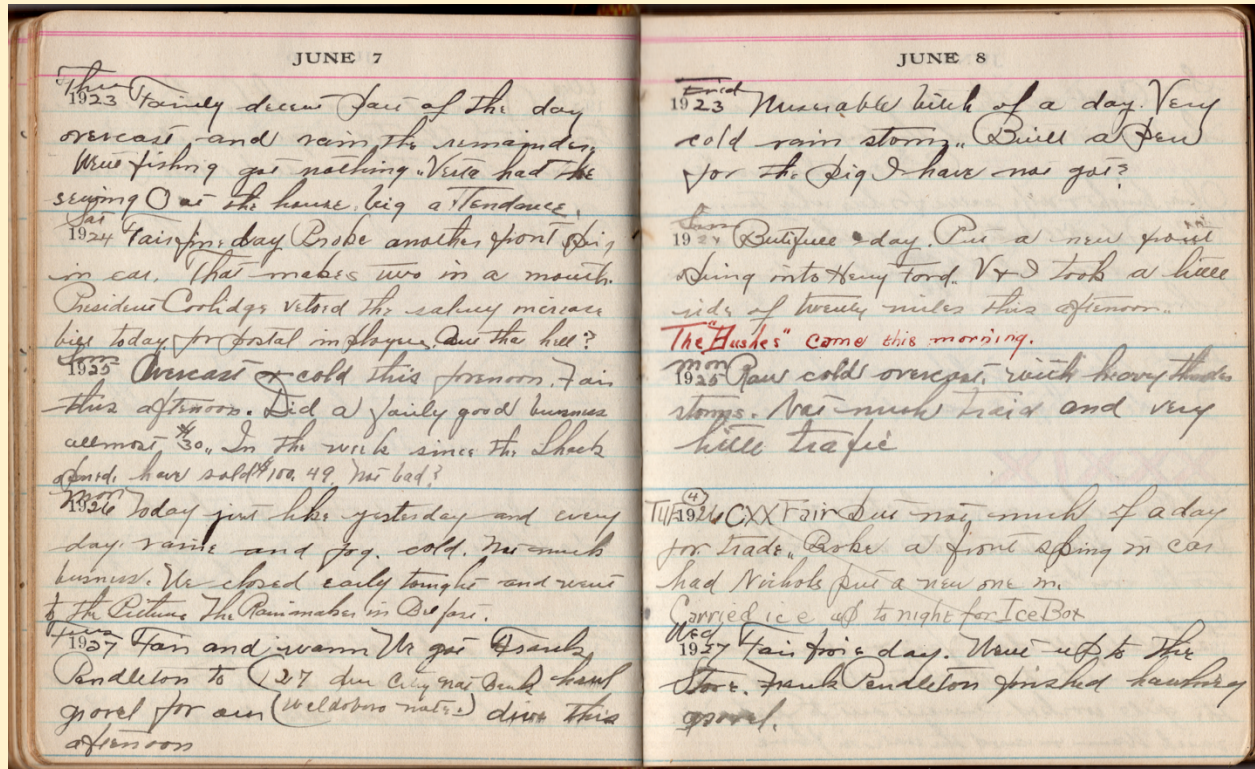 JUNE 7
Thur
1923 Fairly decent part of the day
overcast and rain the remainder.
Went fishing got nothing. Verta had the
sewing O at the house. big attendance.
Sat
1924 Fair fine day Broke another front spring
in car. That makes two in a month.
President Coolidge vetoed the salary increase
bill today for postal imployees. Aint that hell?
Sun
1925 Overcast & cold this forenoon. Fair
this afternoon. Did a fairly good business
allmost $30.. In the week since the Shack
opened. have sold $100.49 Not bad?
Mon
1926 Today just like yesterday and every
day. raine and fog. cold. Not much
business. We closed early tonight and went
to the Picture The Rainmaker in
Tues
1927 Fair and warm We got Frank
Pendleton to (127 due City Nat Bank haul
gravel for our (Waldoboro note) drive this
afternoon
JUNE 8
Frid
1923 Miserable bitch of a day. Very
cold rain storm.. Built a pen
for the pig I have not got?
Sun
1924 Butifull day. Put a new front
spring into Henry Ford. V & I took a little
ride of twenty miles this afternoon..
The "Hushes" came this morning.
Mon
1925 Raw cold overcast. with heavy thunder
storms. Not much traid and very
little trafic
XXXIX
(4)
TUE 1926 CXX Fair but not much of a day
for trade.. Broke a front spring in car
had Nichols put a new one in.
Carried ice up to night for Ice Box
Wed
1927 Fair fine day. Went up to the
Store. Frank Pendleton finished hawling
gravel.